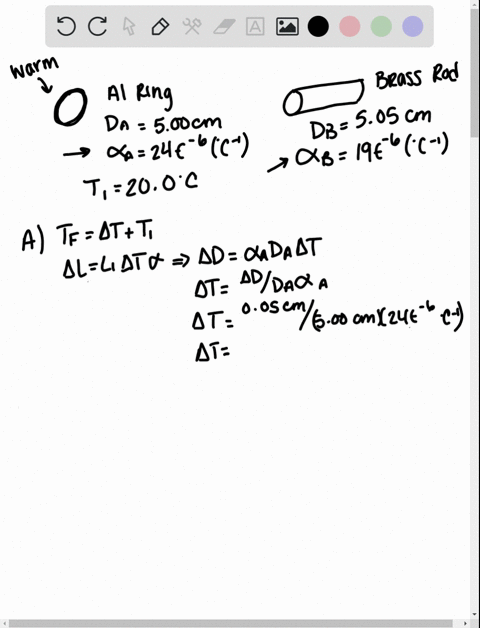 warm
Al Ring
D_A = 5.00cm
α_A = 24E⁻⁶(°C⁻¹)
T₁ = 20.0°C
Brass Rod
D_B = 5.05 cm
α_B = 19E⁻⁶(°C⁻¹)
A) T_F = ΔT + T₁
ΔL = L₁ΔTα ⇒ ΔD = α_A D_A ΔT
ΔT = ΔD/D_A α_A
ΔT = 0.05cm/(5.00 cm)(24E⁻⁶ C⁻¹)
ΔT =